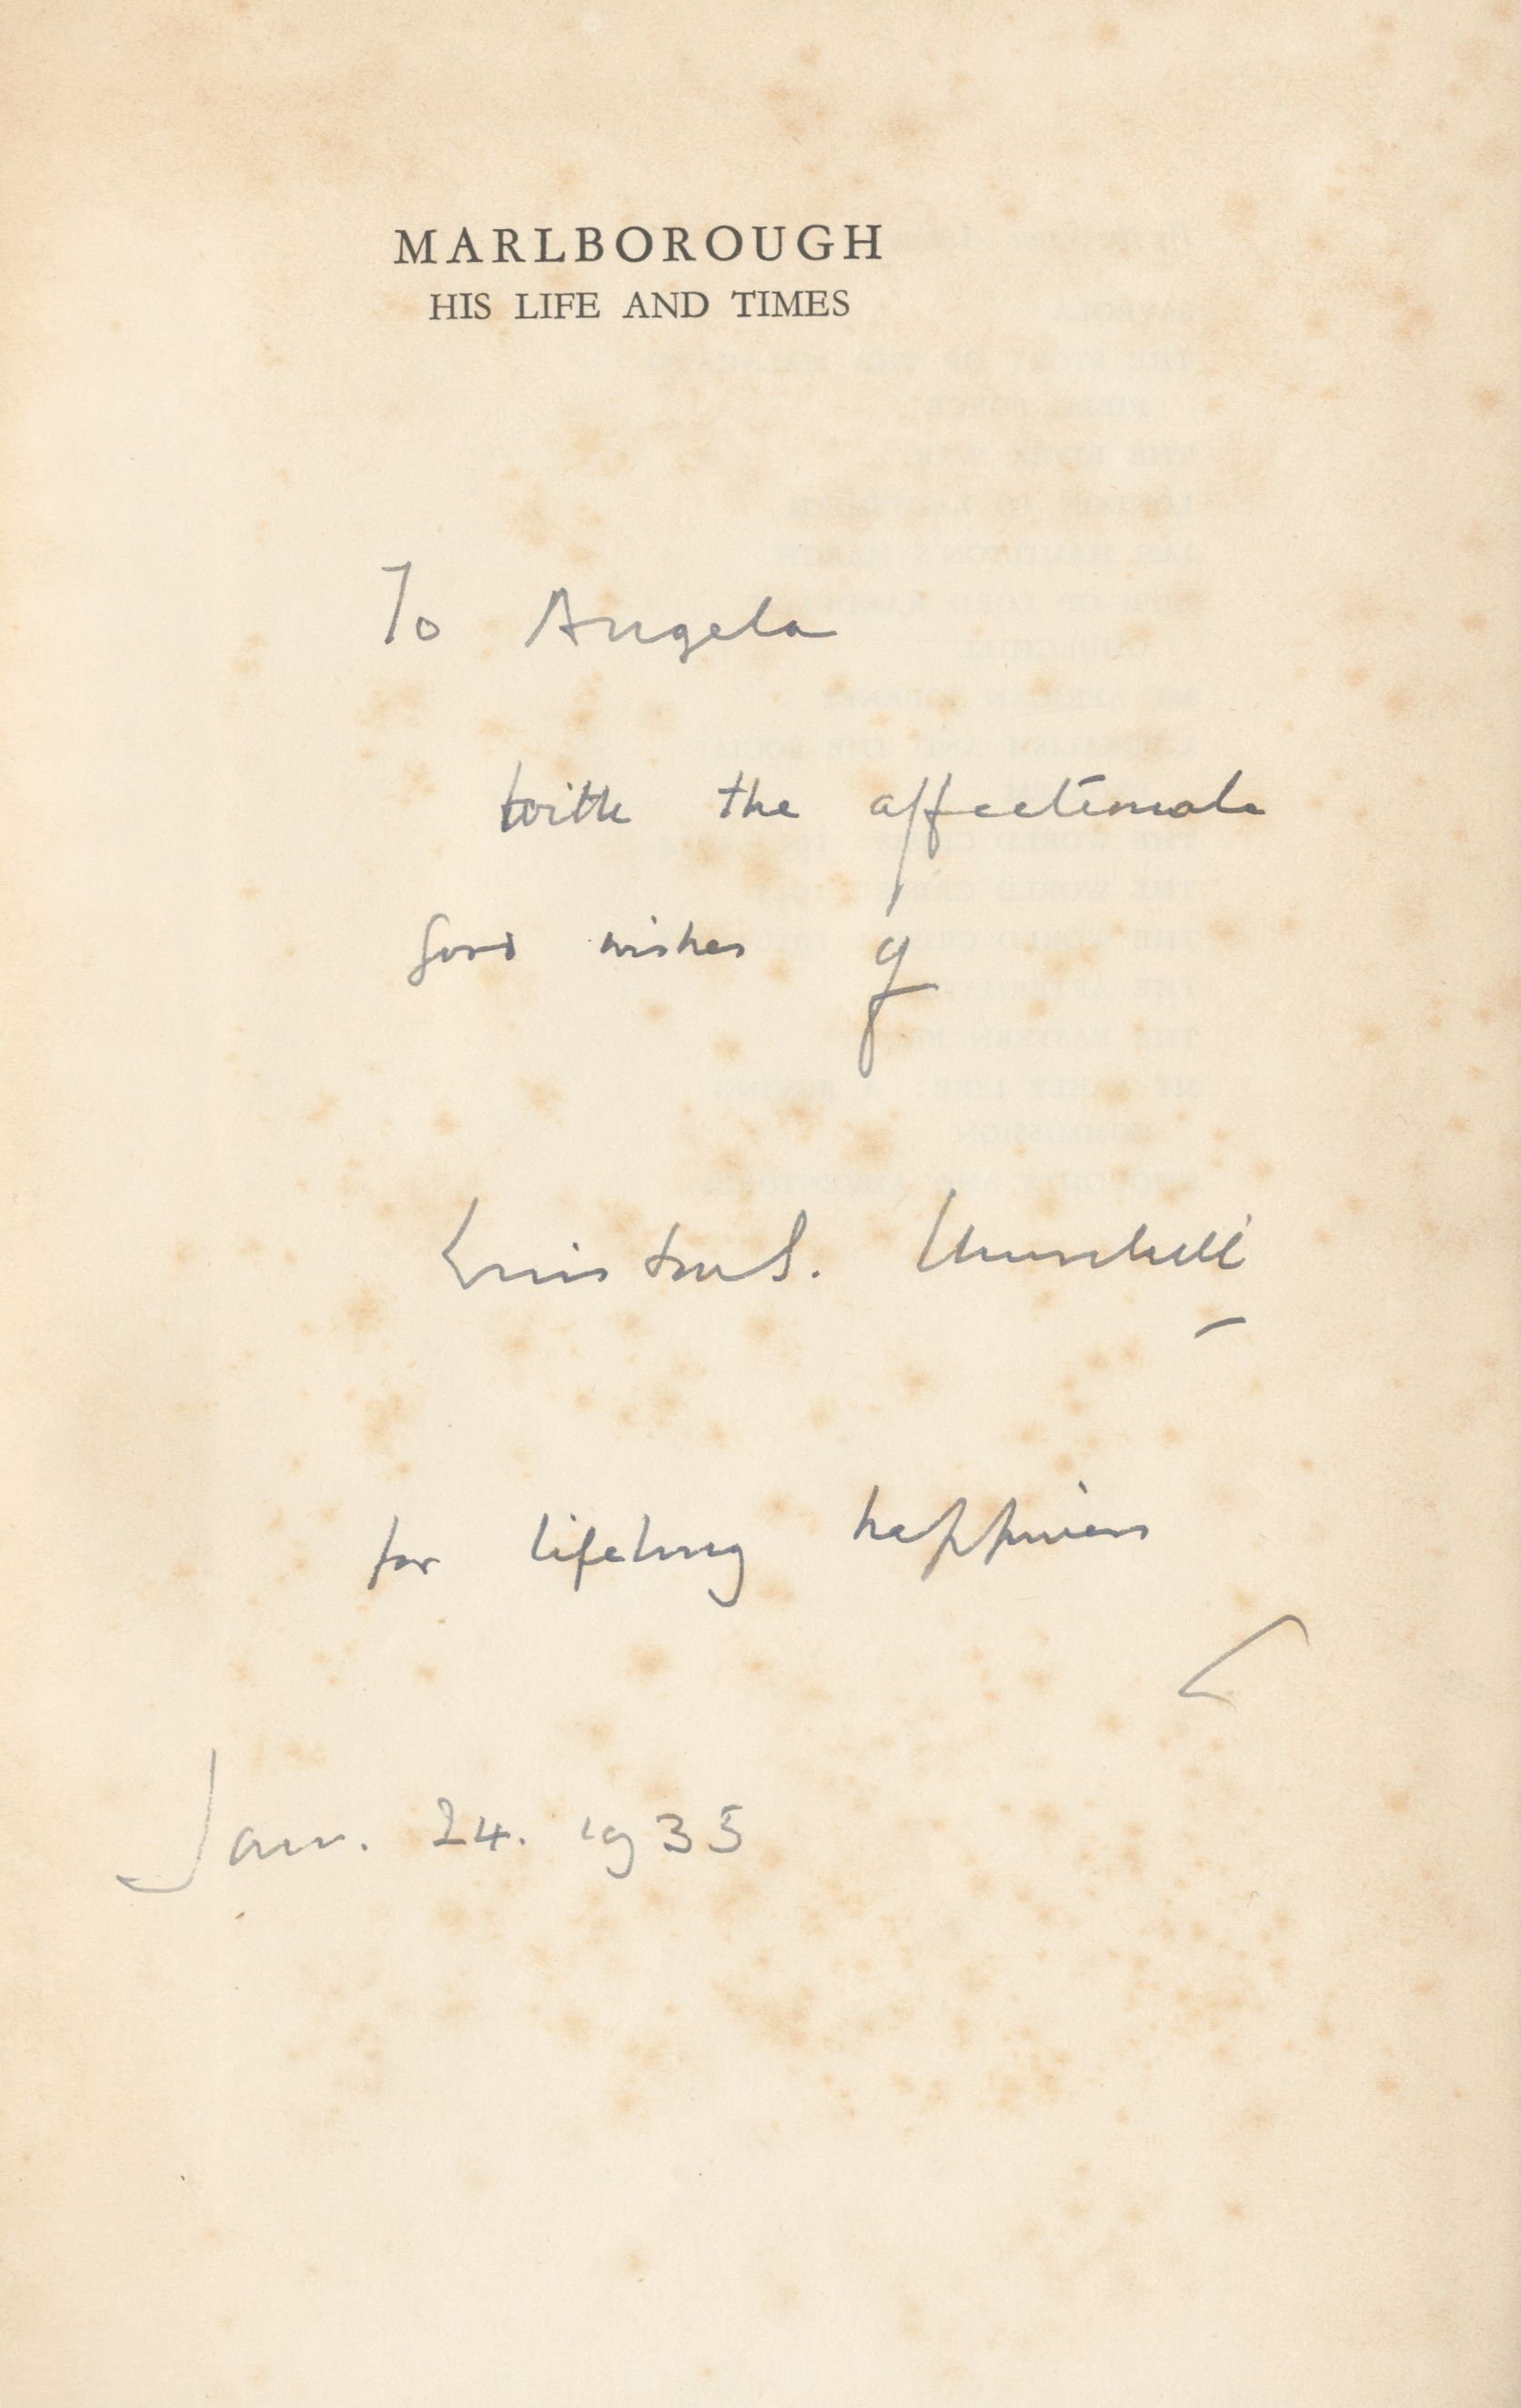 MARLBOROUGH
HIS LIFE AND TIMES
To Angela
with the affectionate
good wishes of
Winston S. Churchill
for lifelong happiness
Jan. 24. 1935